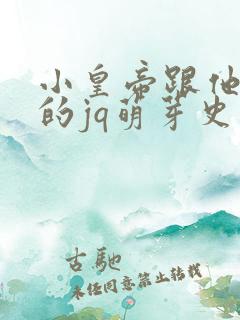 小皇帝跟他
的jq萌芽史
古馳
未經同意禁止轉載